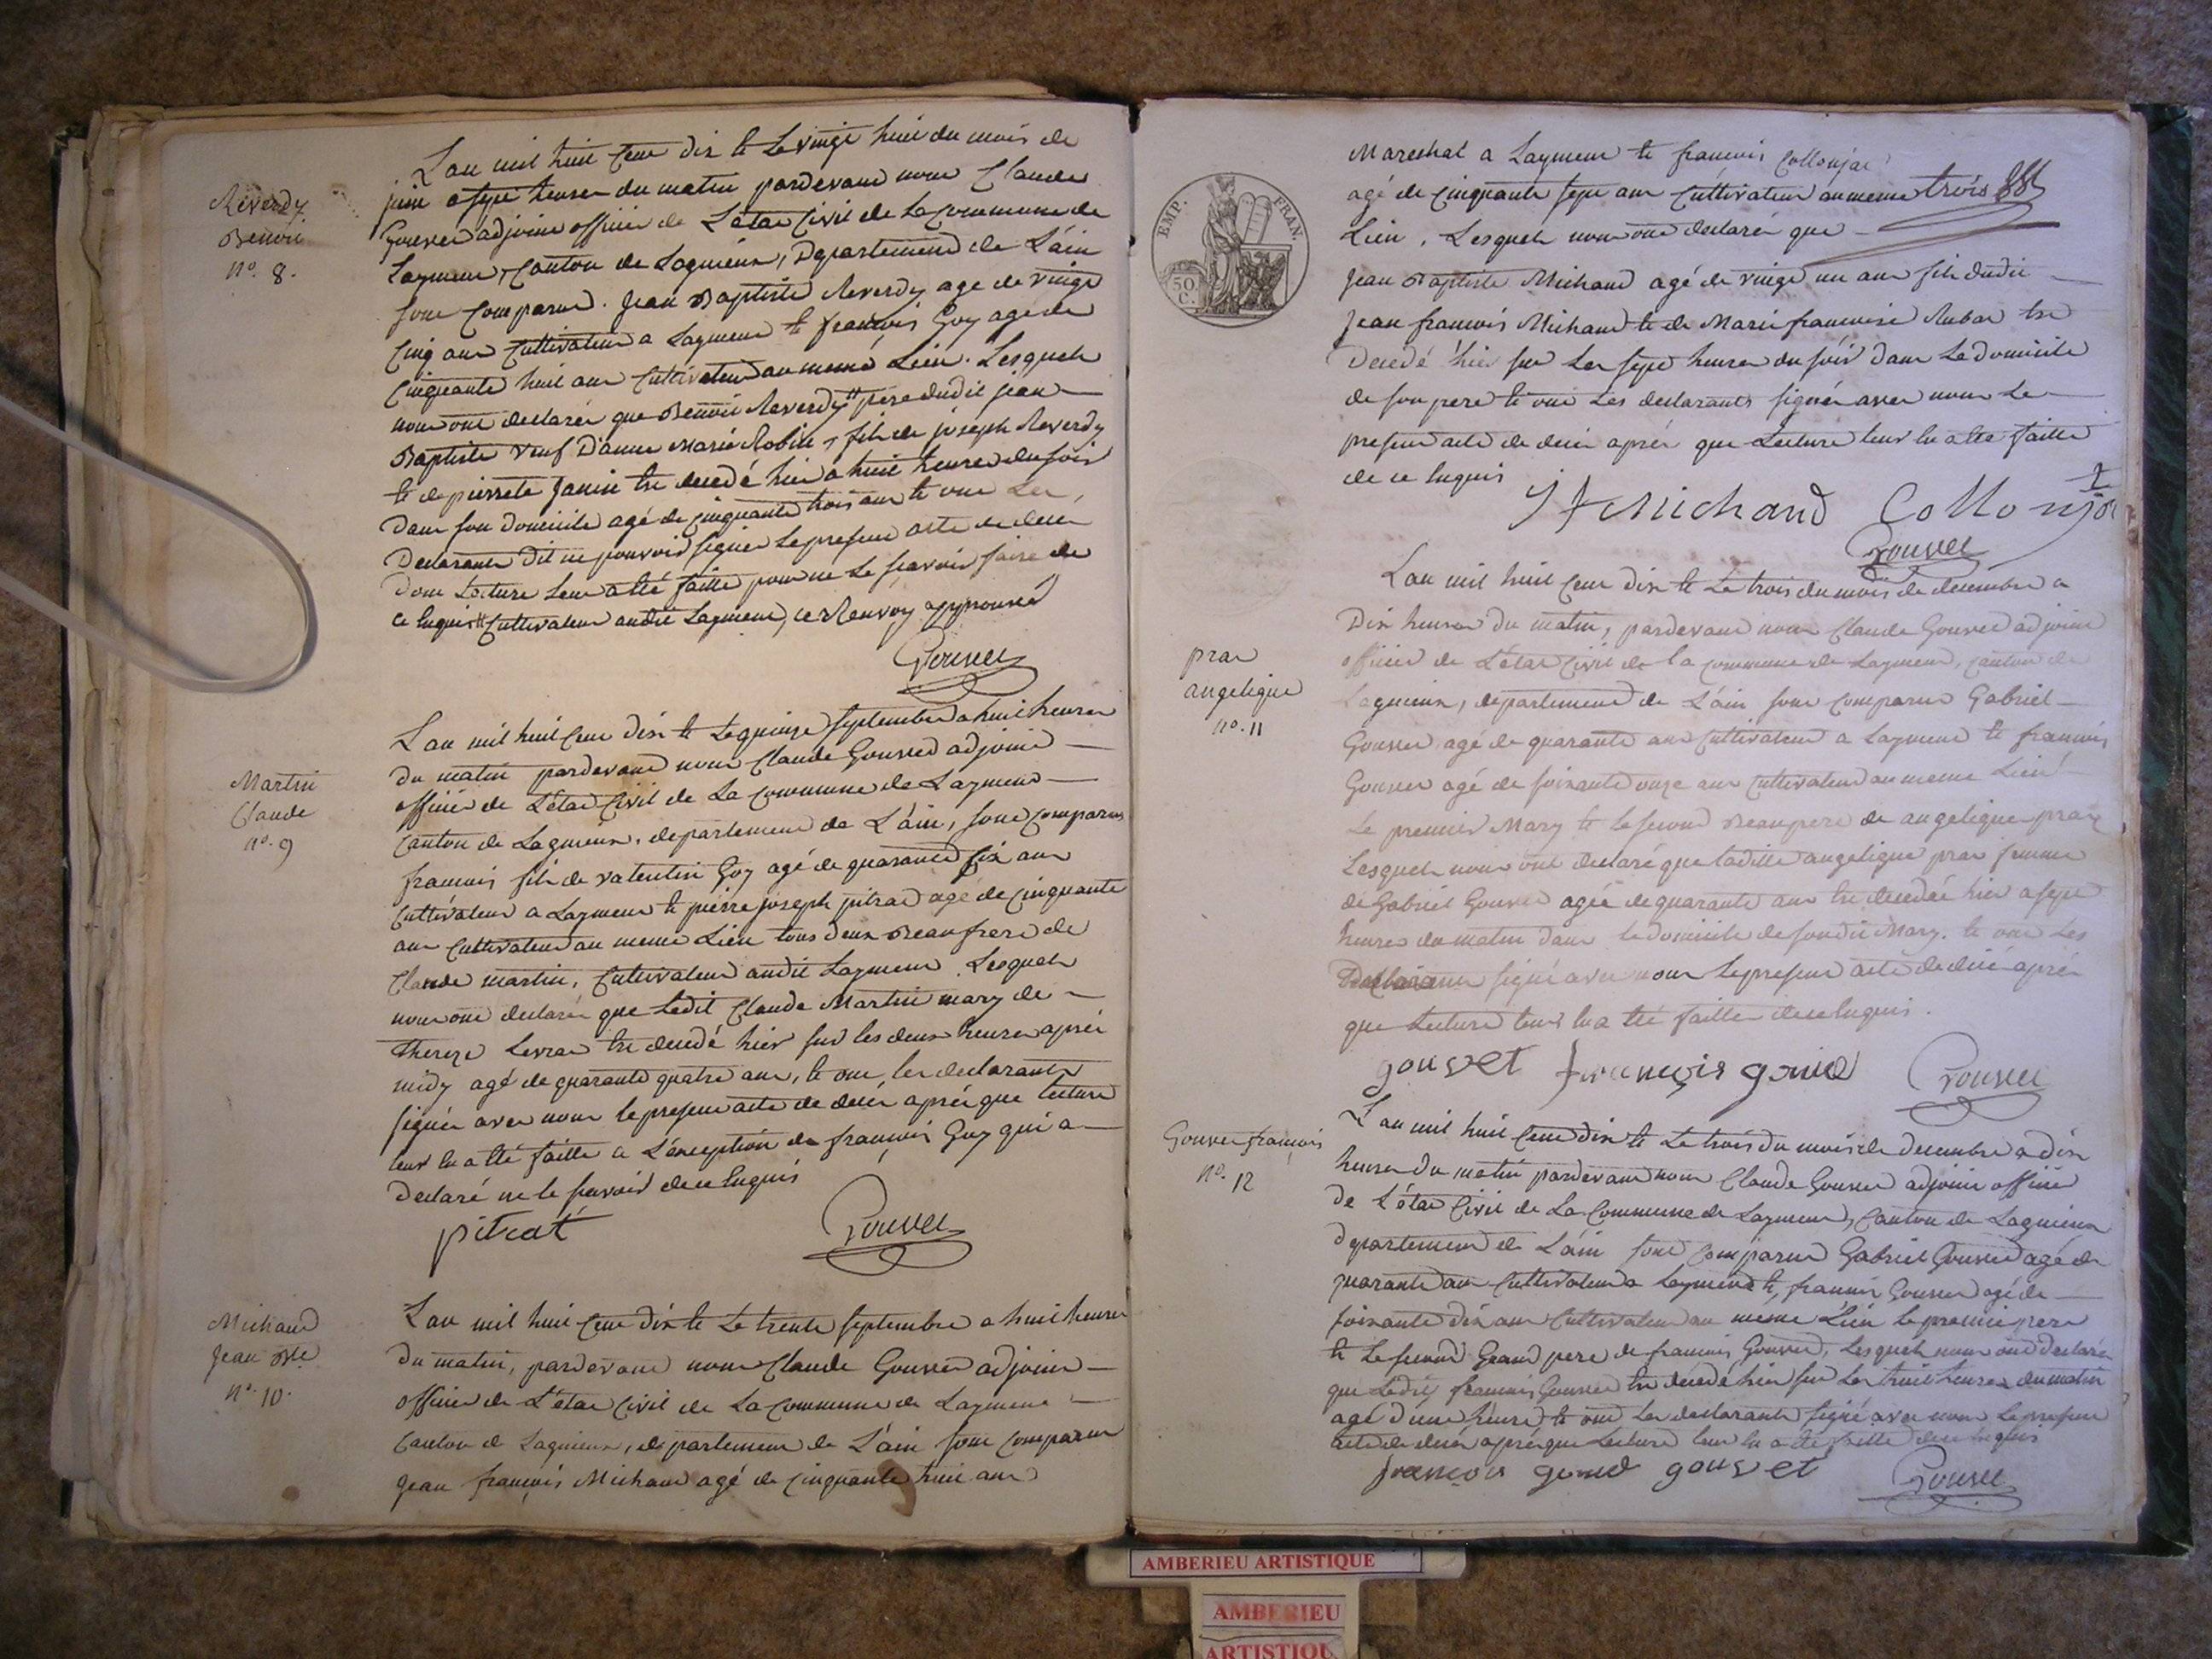 Reverdy
Benoit
n.o 8.
L'an mil huit Cent dix et Le vingt huit du mois de
juin a sept heures du matin pardevant nous Claude
Gouvet adjoint officier de L'état Civil de La Commune de
Laymens, Canton de Lagnieux, Département de L'ain
sont Comparus. jean Baptiste Reverdy agé de vingt
Cinq ans Cultivateur a Laymens et françois Goy agé de
Cinquante huit ans Cultivateur au meme Lieu. Lesquels
nous ont declarés que Benoit Reverdy # pere dudit jean
Baptiste veuf D'anne Marie Robin, fils de joseph Reverdy
et de pierrete Janin est decedé hier a huit heures du soir
Dans son domicile agé de Cinquante trois ans et ont Les
Declarants dit ne pouvoir signer Le present acte de deces
Dont Lecture Leur a été faitte pour ne Le sçavoir faire de
ce enquis # Cultivateur audit Laymens, ce Renvoy approuvé
Gouvet
Martin
Claude
n.o 9
L'an mil huit Cent dix et Le quinze septembre a huit heures
du matin pardevant nous Claude Gouvet adjoint
officier de L'état Civil de La Commune de Laymens
Canton de Lagnieux, departement de L'ain, sont Comparus
francois fils de valentin Goy agé de quarante six ans
Cultivateur a Laymens et pierre joseph pitrat agé de Cinquante
ans Cultivateur au meme Lieu tous deux Beau frere de
Claude martin, Cultivateur audit Laymens. Lesquels
nous ont declarés que Ledit Claude Martin mary de
Thereze Levrat est decedé hier sur les deux heures aprés
midy agé de quarante quatre ans, et ont les declarants
signés avec nous le present acte de decés aprés que lecture
leur en a été faitte a L'exception de françois Goy qui a
declaré ne le savoir de ce enquis
pitrat
Gouvet
Michaud
jean Bte
n.o 10.
L'an mil huit Cent dix et Le trente septembre a huit heures
du matin, pardevant nous Claude Gouvet adjoint
officier de L'état Civil de La Commune de Laymens
Canton de Lagnieux, departement de L'ain sont Comparus
jean françois Michaud agé de Cinquante huit ans
EMP. FRAN.
50
C.
Marechal a Laymens et francois Collonjat
agé de Cinquante sept ans Cultivateur au meme trois
Lieu, Lesquels nous ont declarés que
jean Baptiste Michaud agé de vingt un ans fils dudit
jean francois Michaud et de Marie francoise Rubat est
Decedé hier sur Les sept heures du soir dans Le domicile
de son pere et ont Les declarants signés avec nous Le
present acte de deces aprés que Lecture leur en a été faitte
de ce enquis
J f Michaud Collonja
Gouvet
prax
angelique
n.o 11
L'an mil huit Cent dix et Le trois du mois de decembre a
Dix heures du matin, pardevant nous Claude Gouvet adjoint
officier de L'état Civil de la commune de Laymens, canton de
Lagnieux, departement de L'ain sont Comparus Gabriel
Gouvet agé de quarante ans Cultivateur a Laymens et francois
Gouvet agé de soixante onze ans Cultivateur au meme Lieu
Le premier Mary et le second Beau pere de angelique prax
Lesquels nous ont declaré que ladite angelique prax femme
de Gabriel Gouvet agée de quarante ans est decedée hier a sept
heures du matin dans le domicile de sondit Mary. et ont Les
Declarants signé avec nous Le present acte de décé aprés
que Lecture leur en a été faitte de ce enquis.
gouvet françois gouvet
Gouvet
Gouvet françois
n.o 12
L'an mil huit Cent dix et Le trois du mois de decembre a dix
heures du matin pardevant nous Claude Gouvet adjoint officier
de L'état Civil de La Commune de Laymens, Canton de Lagnieux
departement de L'ain sont Comparus Gabriel Gouvet agé de
quarante ans Cultivateur a Laymens et francois Gouvet agé de
soixante dix ans Cultivateur au meme Lieu le premier pere
et Le second Grand pere de francois Gouvet, Lesquels nous ont declarés
que Ledit francois Gouvet est decedé hier sur Les huit heures du matin
agé d'une heure et ont Les declarants signé avec nous Le present
acte de deces aprés que Lecture leur en a été faitte de ce enquis
françois gouvet gouvet
Gouvet
AMBERIEU ARTISTIQUE
AMBERIEU
ARTISTIQU